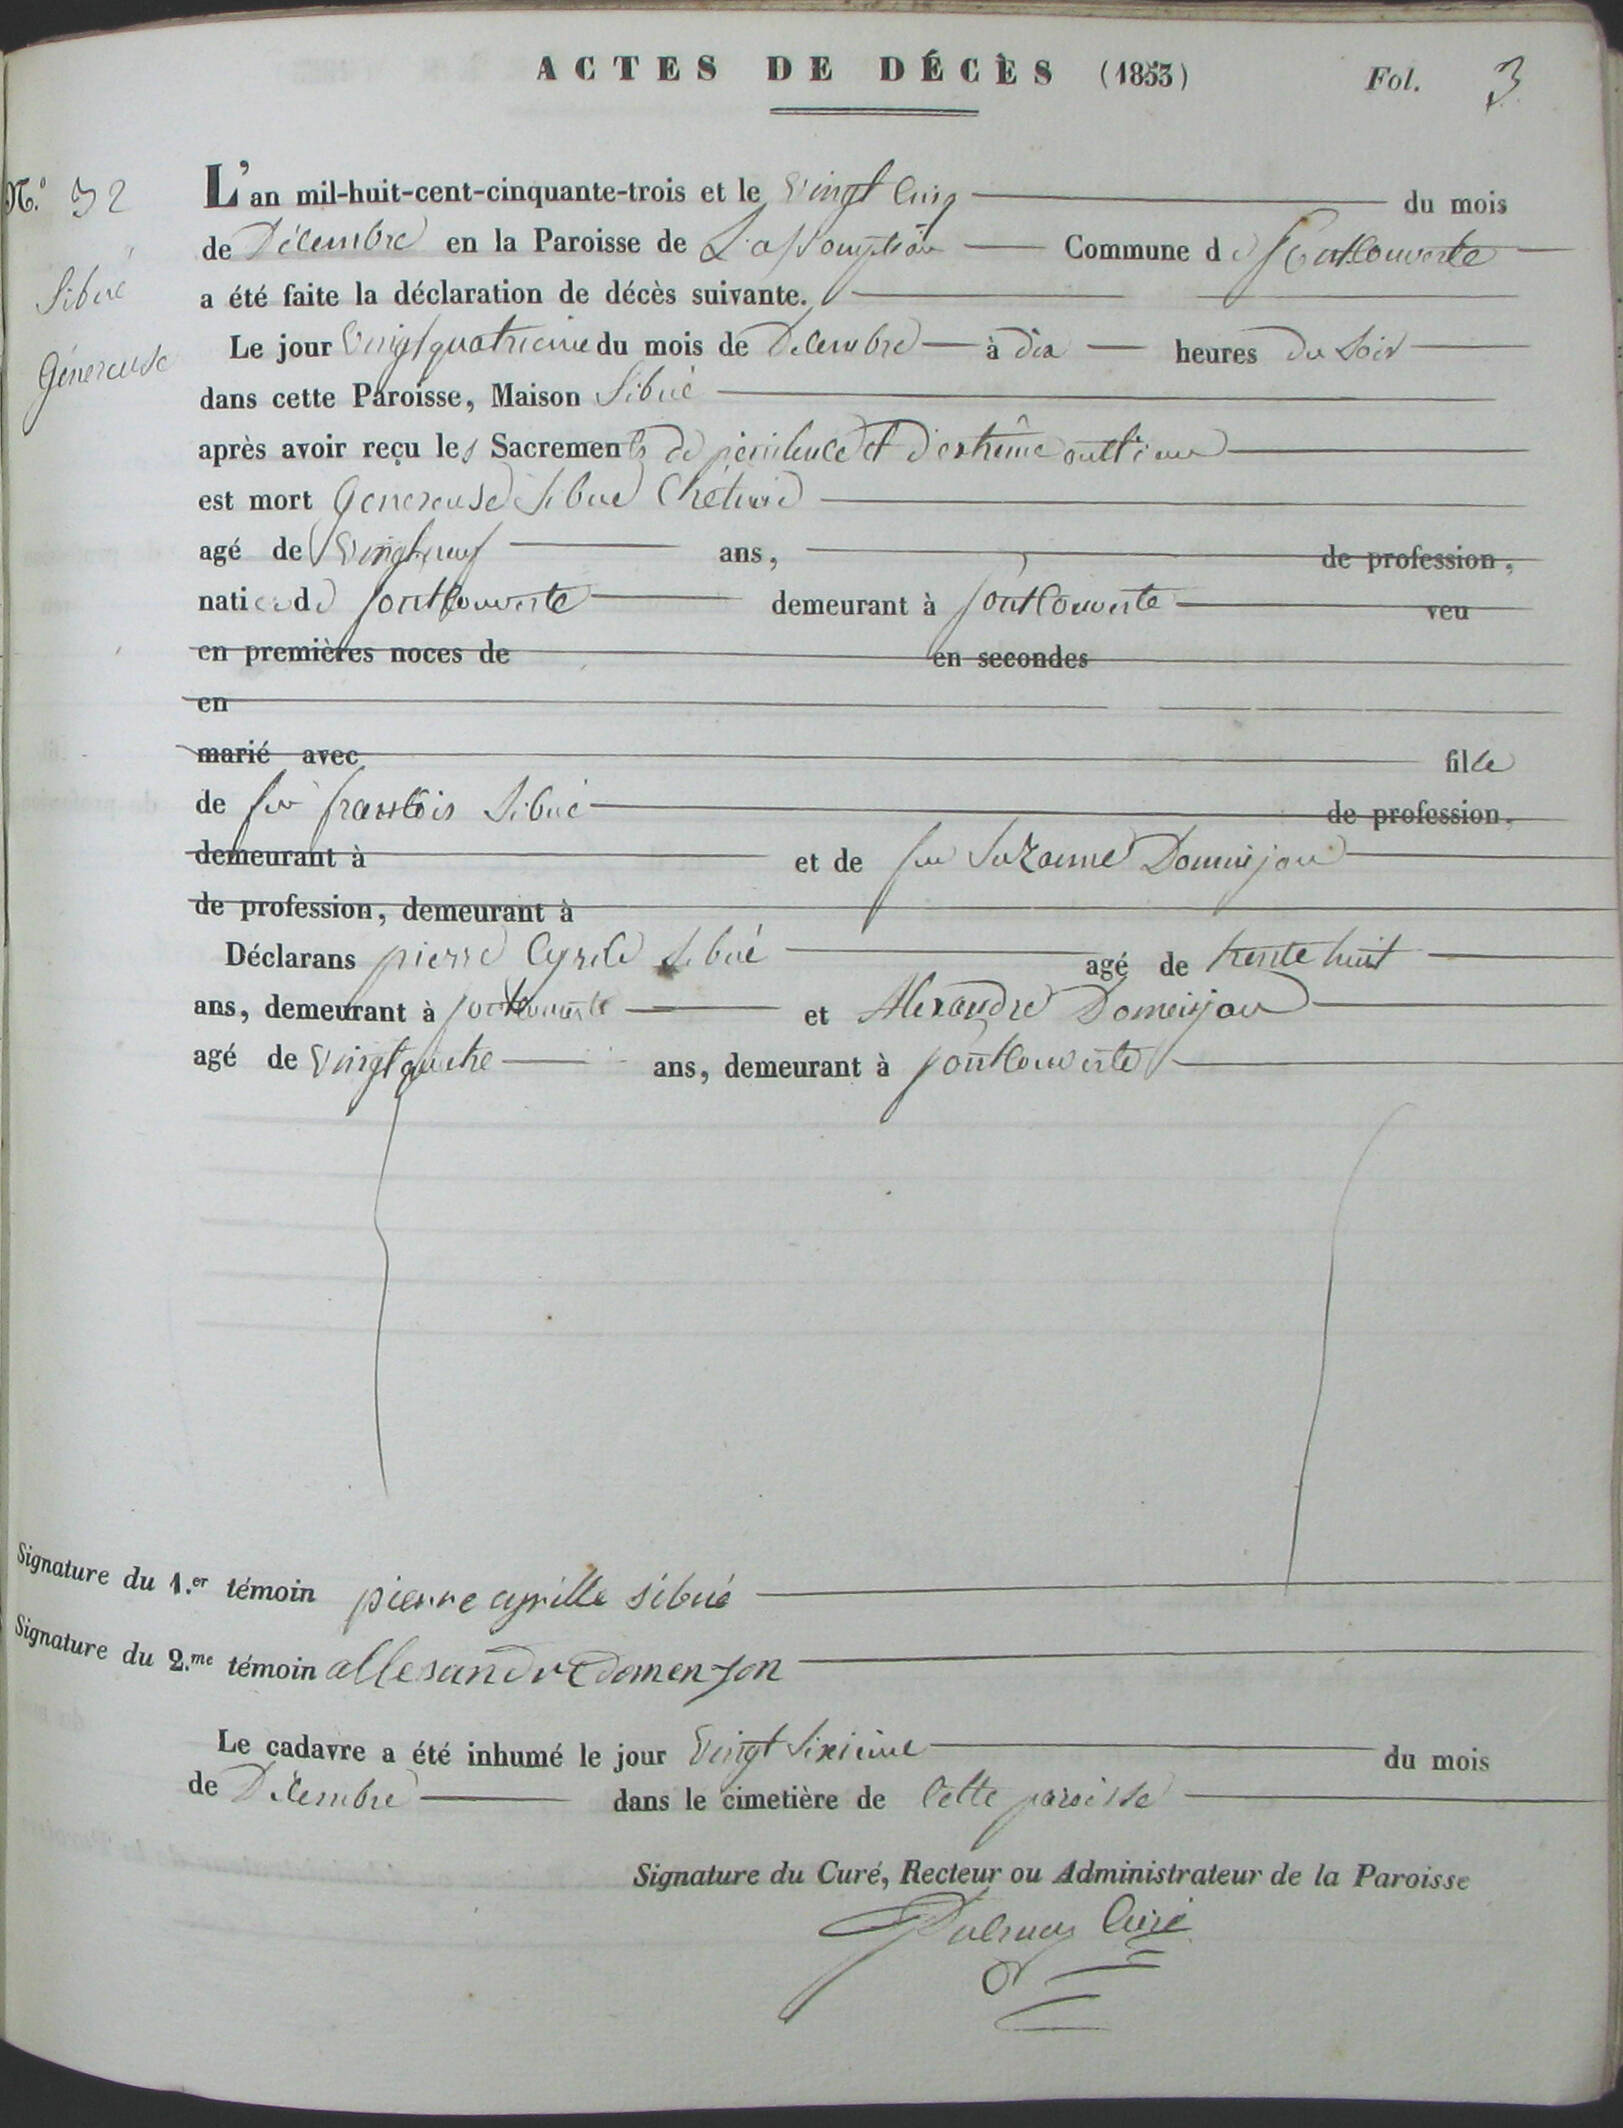 ACTES DE DÉCÈS (1853) Fol. 3
N.º 32
Sibué
Génereuse
L'an mil-huit-cent-cinquante-trois et le vingt cinq du mois
de Décembre en la Paroisse de L'assomption Commune de fontcouverte
a été faite la déclaration de décès suivante.
Le jour vingtquatrieme du mois de Décembre à dix heures du soir
dans cette Paroisse, Maison Sibué
après avoir reçu les Sacrements de penitence et d'extrême
est mort Genereuse Sibué
agé de vingt neuf ans, de profession,
native de fontcouverte demeurant à fontcouverte veu
en premières noces de en secondes
en
marié avec fille
de feu françois Sibué de profession.
demeurant à et de feu Suzanne Domeinjou
de profession, demeurant à
Déclarans pierre Cyrile Sibué agé de trente huit
ans, demeurant à fontcouverte et Alexandre Domeinjou
agé de vingt quatre ans, demeurant à fontcouverte
Signature du 1.er témoin pierre cyrille sibué
Signature du 2.me témoin allesandre domenjon
Le cadavre a été inhumé le jour vingt sixieme du mois
de Décembre dans le cimetière de cette paroisse
Signature du Curé, Recteur ou Administrateur de la Paroisse
Curé